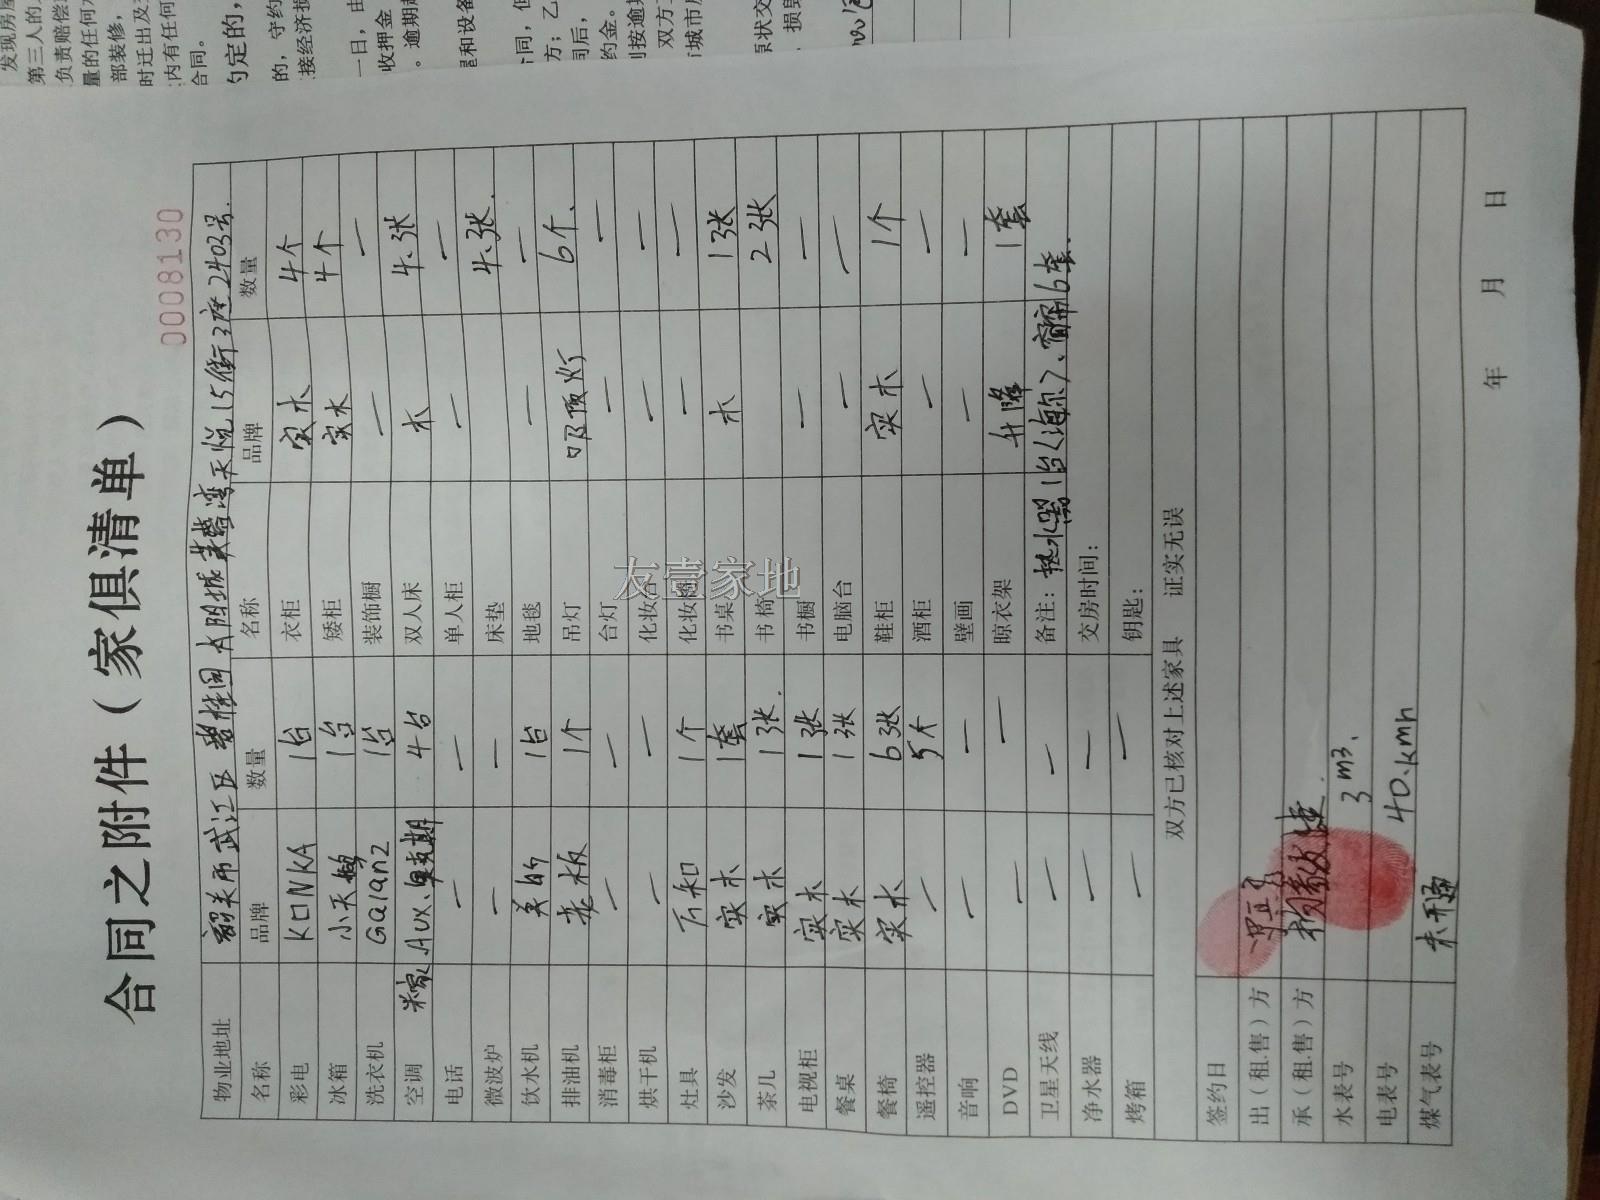 合同之附件（家俱清单）
0008130
物业地址 韶关市武江区碧桂园太阳城芙蓉湾天悦15街3座2403号.
名称 品牌 数量 名称 品牌 数量
彩电 KONKA 1台 衣柜 实木 4个
冰箱 小天鹅 1台 矮柜 实木 4个
洗衣机 Galanz 1台 装饰橱 — —
空调 米家、Aux、奥克斯 4台 双人床 木 4张
电话 — — 单人柜 — —
微波炉 — — 床垫 4张.
饮水机 美的 1台 地毯 — —
排油机 老板 1个 吊灯 吸顶灯 6个、
消毒柜 — 台灯 — —
烘干机 — — 化妆台 — —
灶具 万和 1个 化妆橱 — —
沙发 实木 1套 书桌 木 1张
茶几 实木 1张. 书椅 2张
电视柜 实木 1张 书橱 — —
餐桌 实木 1张 电脑台 — —
餐椅 实木 6张 鞋柜 实木 1个
遥控器 — 5个 酒柜 — —
音响 — — 壁画 — —
DVD — — 晾衣架 升降 1套
卫星天线 — — 备注：热水器1台(海尔)、窗帘6套.
净水器 — — 交房时间：
烤箱 — — 钥匙：
双方已核对上述家具 证实无误
签约日
出（租.售）方
承（租.售）方
水表号 3m3、
电表号 40.kmh
煤气表号 未通
年 月 日
友壹家地